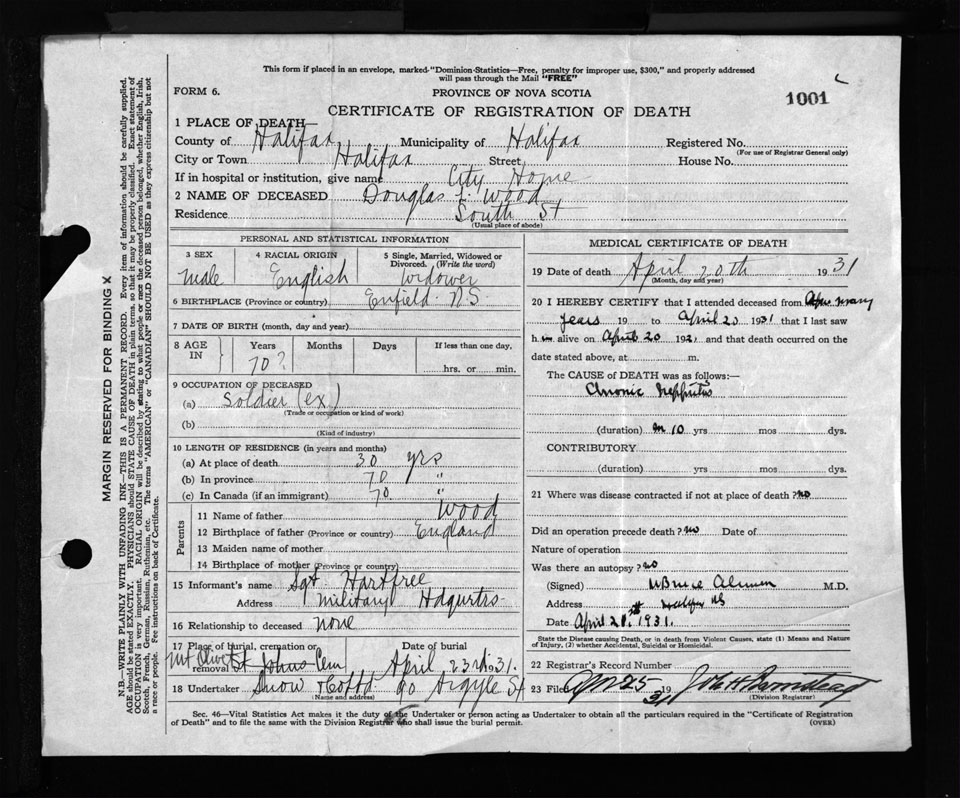 This form if placed in an envelope, marked "Dominion-Statistics—Free, penalty for improper use, $300," and properly addressed
will pass through the Mail "FREE"
FORM 6.
PROVINCE OF NOVA SCOTIA
1001
CERTIFICATE OF REGISTRATION OF DEATH
1 PLACE OF DEATH
County of Halifax Municipality of Halifax Registered No.
(For use of Registrar General only)
City or Town Halifax Street House No.
If in hospital or institution, give name City Home
2 NAME OF DECEASED Douglas Wood
Residence South St
(Usual place of abode)
PERSONAL AND STATISTICAL INFORMATION
3 SEX 4 RACIAL ORIGIN 5 Single, Married, Widowed or
Divorced. (Write the word)
Male English Widower
6 BIRTHPLACE (Province or country) Enfield N.S
7 DATE OF BIRTH (month, day and year)
8 AGE IN Years Months Days If less than one day,
70? hrs. or min.
9 OCCUPATION OF DECEASED
(a) Soldier (ex)
(Trade or occupation or kind of work)
(b)
(Kind of industry)
10 LENGTH OF RESIDENCE (in years and months)
(a) At place of death 30 yrs
(b) In province 70 "
(c) In Canada (if an immigrant) 70 "
Parents
11 Name of father Wood
12 Birthplace of father (Province or country) England
13 Maiden name of mother
14 Birthplace of mother (Province or country)
15 Informant's name Sgt Hartfree
Address Military Hdqurtrs
16 Relationship to deceased none
17 Place of burial, cremation or Date of burial
removal Mt Olivet St Johns Cem April 23rd 1931.
18 Undertaker Snow & Co Ltd 90 Argyle St
(Name and address)
MEDICAL CERTIFICATE OF DEATH
19 Date of death April 20th 1931
(Month, day and year)
20 I HEREBY CERTIFY that I attended deceased from many
years 19 to April 20 1931 that I last saw
him alive on April 20 1931 and that death occurred on the
date stated above, at m.
The CAUSE OF DEATH was as follows:—
Chronic Nephritis
(duration) 10 yrs mos dys.
CONTRIBUTORY
(duration) yrs mos dys.
21 Where was disease contracted if not at place of death? no
Did an operation precede death? no Date of
Nature of operation
Was there an autopsy? no
(Signed) Bruce Almon M.D.
Address Halifax NS
Date April 21. 1931.
State the Disease causing Death, or in death from Violent Causes, state (1) Means and Nature
of Injury, (2) whether Accidental, Suicidal or Homicidal.
22 Registrar's Record Number
23 Filed Apr 25 1931
(Division Registrar)
Sec. 46—Vital Statistics Act makes it the duty of the Undertaker or person acting as Undertaker to obtain all the particulars required in the "Certificate of Registration
of Death" and to file the same with the Division Registrar who shall issue the burial permit.
(OVER)
MARGIN RESERVED FOR BINDING X
N.B.—WRITE PLAINLY WITH UNFADING INK—THIS IS A PERMANENT RECORD. Every item of information should be carefully supplied.
AGE should be stated EXACTLY. PHYSICIANS should STATE CAUSE OF DEATH in plain terms, so that it may be properly classified. Exact statement of
OCCUPATION is very important. RACIAL ORIGIN will be described by stating to what people or race the deceased person belonged, whether English, Irish,
Scotch, French, German, Russian, Ruthenian, etc. The terms "AMERICAN" or "CANADIAN" SHOULD NOT BE USED as they express citizenship but not
a race or people. See instructions on back of Certificate.